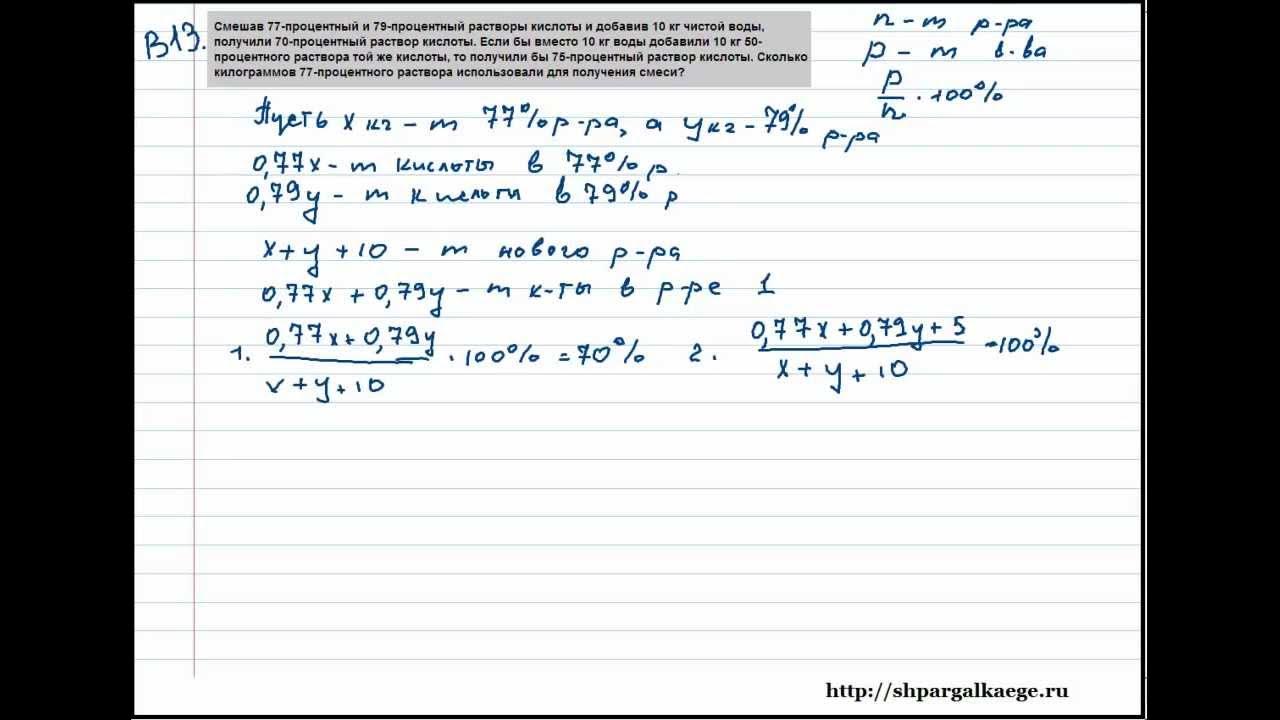 В13.
Смешав 77-процентный и 79-процентный растворы кислоты и добавив 10 кг чистой воды,
получили 70-процентный раствор кислоты. Если бы вместо 10 кг воды добавили 10 кг 50-
процентного раствора той же кислоты, то получили бы 75-процентный раствор кислоты. Сколько
килограммов 77-процентного раствора использовали для получения смеси?
n - m р-ра
p - m в-ва
p/n · 100%
Пусть x кг - m 77% р-ра, а y кг - 79% р-ра
0,77x - m кислоты в 77% р
0,79y - m кислоты в 79% р
x + y + 10 - m нового р-ра
0,77x + 0,79y - m к-ты в р-ре 1
1. (0,77x + 0,79y)/(x + y + 10) · 100% = 70%
2. (0,77x + 0,79y + 5)/(x + y + 10) · 100%
http://shpargalkaege.ru